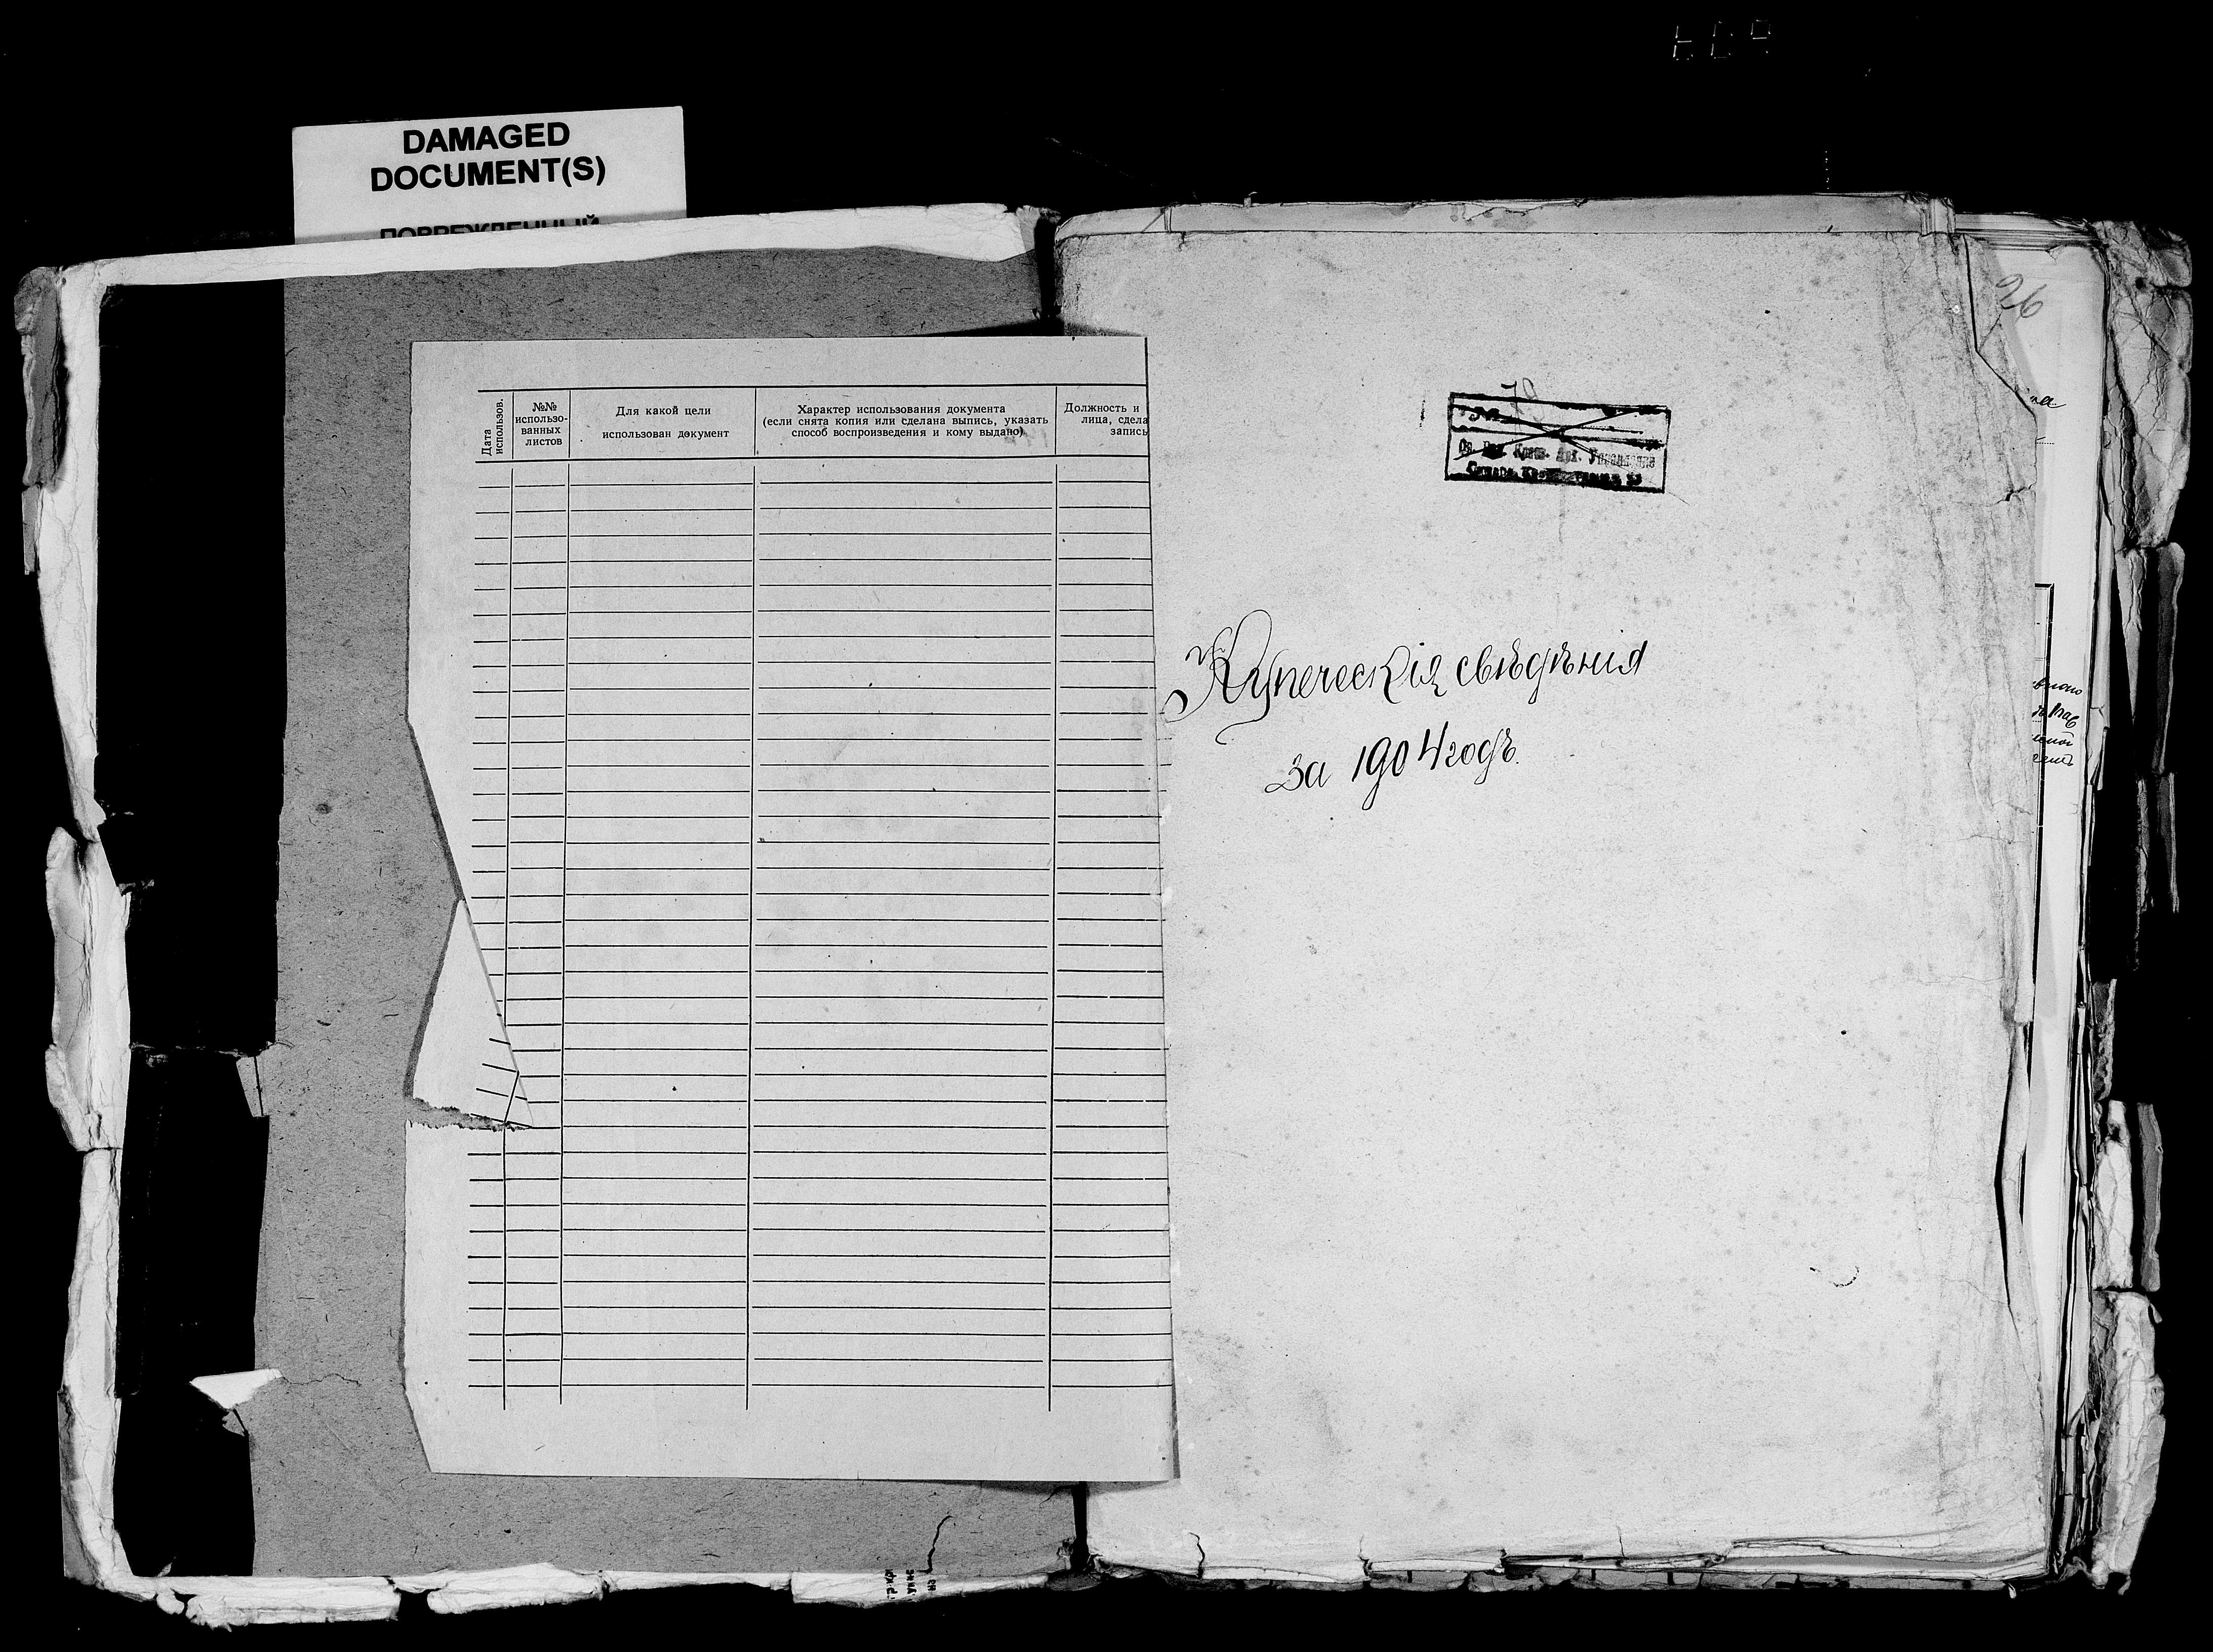 DAMAGED
DOCUMENT(S)
ПОВРЕЖДЕННЫЙ
Дата
использов.
№№
использо-
ванных
листов
Для какой цели
использован документ
Характер использования документа
(если снята копия или сделана выпись, указать
способ воспроизведения и кому выдано)
Должность и
лица, сдела
запись
26
Арх. Управление
Купеческія свѣдѣнія
за 1904 годъ.